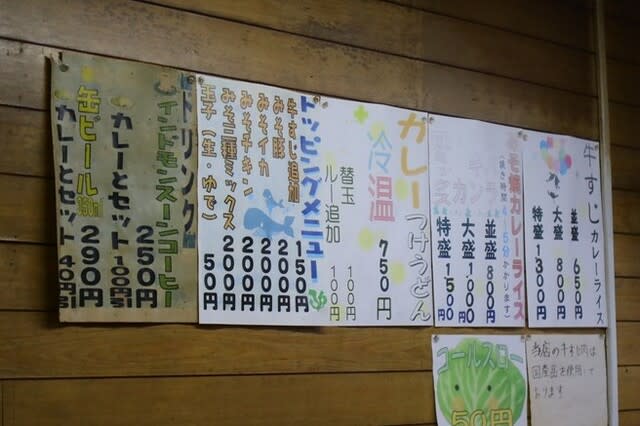 牛すじカレーライス
並盛 650円
大盛 800円
特盛 1300円
みそ漬カレーライス
並盛 800円
大盛 1000円
特盛 1500円
カレーつけうどん
冷 温 750円
替玉 100円
ルー追加 100円
トッピングメニュー
牛すじ追加 150円
みそ豚 200円
みそイカ 200円
みそチキン 200円
みそ三種ミックス 200円
玉子(生・ゆで) 50円
ドリンク
インドモンスーンコーヒー 250円
カレーとセット 100円引
缶ビール 350ml 290円
カレーとセット 40円引
コールスロー
50円
当店の牛すじ肉は
国産品を使用して
おります